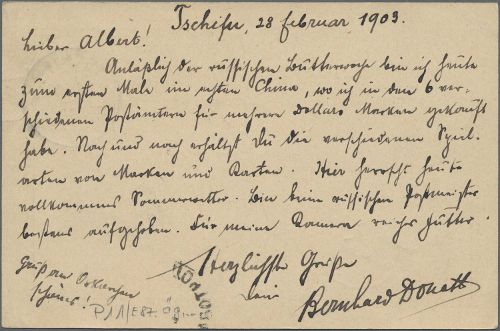 Tschifu, 28 Februar 1903.
Lieber Albert!
Anläßlich der russischen Butterwoche bin ich heute
zum ersten Male im echten China, wo ich in den 6 ver-
schiedenen Postämtern für mehrere Dollars Marken gekauft
habe. Nach und nach erhältst Du die verschiedenen Spiel-
arten von Marken und Karten. Hier herrscht heute
vollkommnes Sommerwetter. Bin beim russischen Postmeister
bestens aufgehoben. Für meine Kamera reichs Futter.
Herzlichste Grüße
Dein Bernhard Donath
Gruß an
schöns!
P/1/E87.